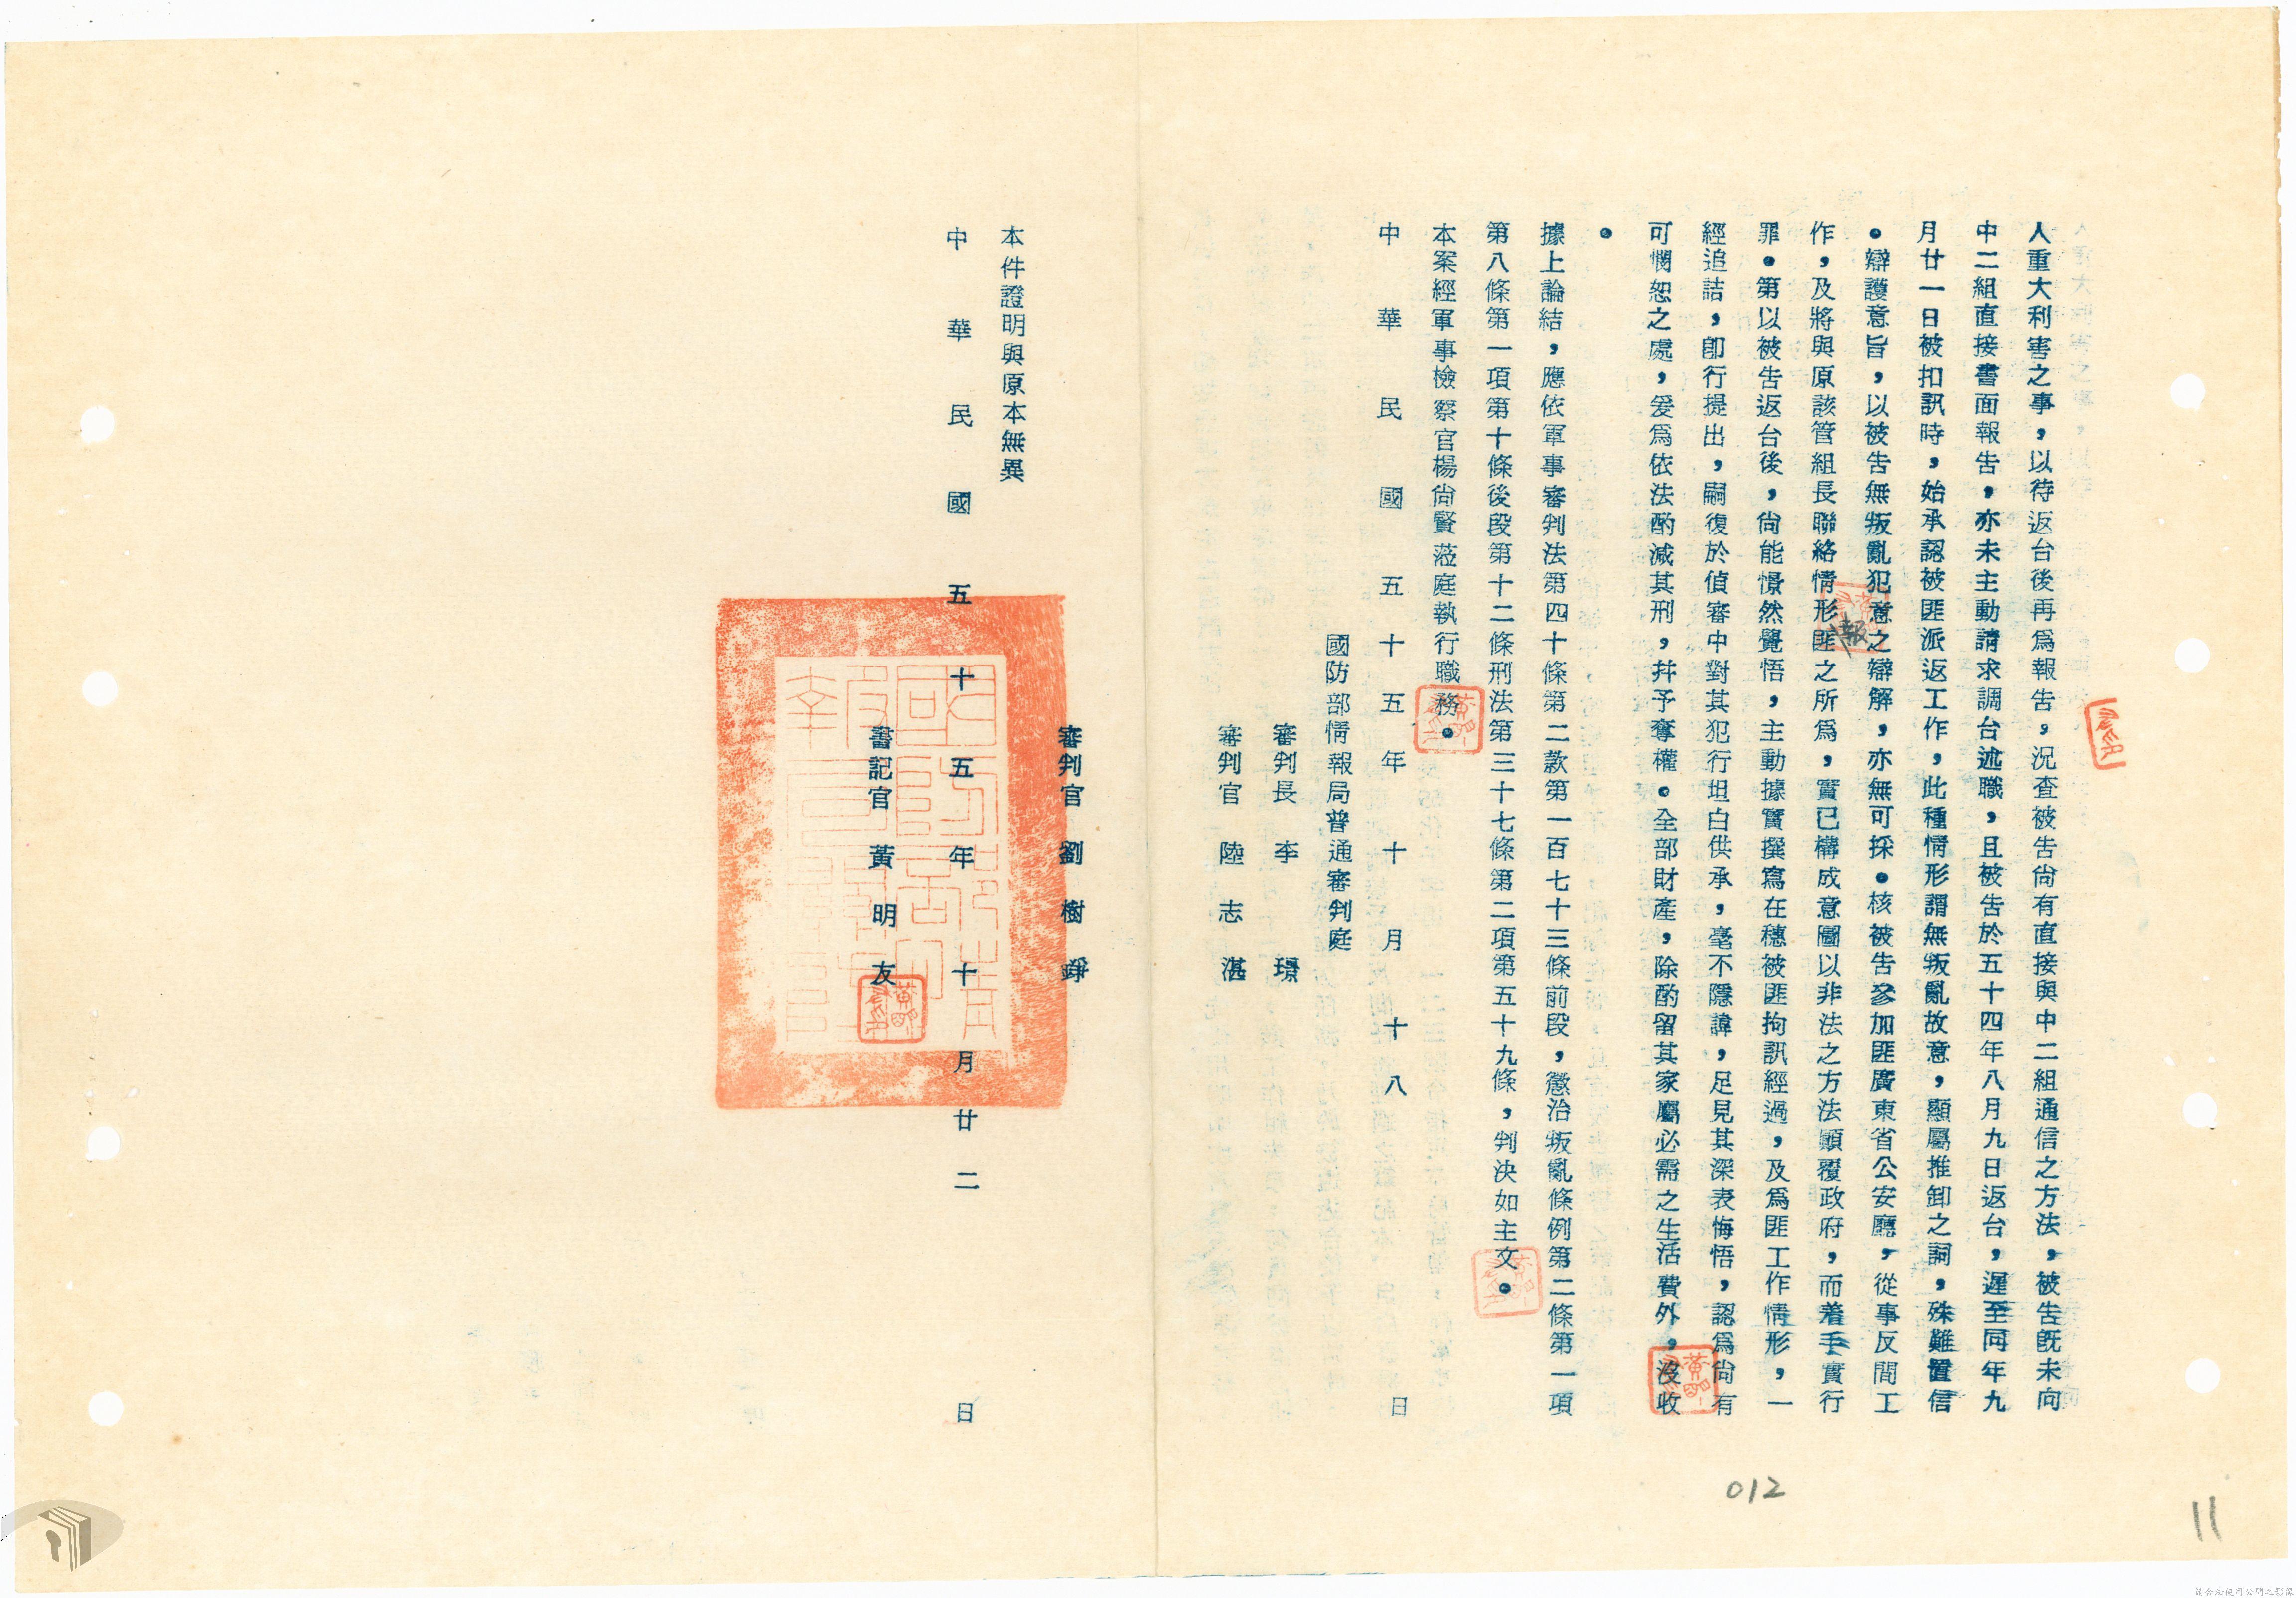 人重大利害之事，以待返台後再為報告。況查被告尚有直接與中二組通信之方法，被告既未向
中二組直接書面報告，亦未主動請求調台述職，且被告於五十四年八月九日返台，遲至同年九
月廿一日被扣訊時，始承認被匪派返工作，此種情形謂無叛亂故意，顯屬推卸之詞，殊難置信
。辯護意旨，以被告無叛亂犯意之辯解，亦無可採。核被告參加匪廣東省公安廳，從事反間工
作，及將與原該管組長聯絡情形匪之所為，實已構成意圖以非法之方法顛覆政府，而着手實行
報
罪。第以被告返台後，尚能憬然覺悟，主動據實撰寫在穗被匪拘訊經過，及為匪工作情形，一
經追詰，即行提出，嗣復於偵審中對其犯行坦白供承，毫不隱諱，足見其深表悔悟，認為尚有
可憫恕之處，爰為依法酌減其刑，并予奪權。全部財產，除酌留其家屬必需之生活費外，沒收
。
據上論結，應依軍事審判法第四十條第二款第一百七十三條前段，懲治叛亂條例第二條第一項
第八條第一項第十條後段第十二條刑法第三十七條第二項第五十九條，判決如主文。
本案經軍事檢察官楊尚賢蒞庭執行職務。
中華民國五十五年十月十八日
國防部情報局普通審判庭
審判長 李璟
審判官 陸志湛
審判官 劉樹錚
本件證明與原本無異
中華民國五十五年十月廿二日
書記官 黃明友
012
11
請合法使用公開之影像